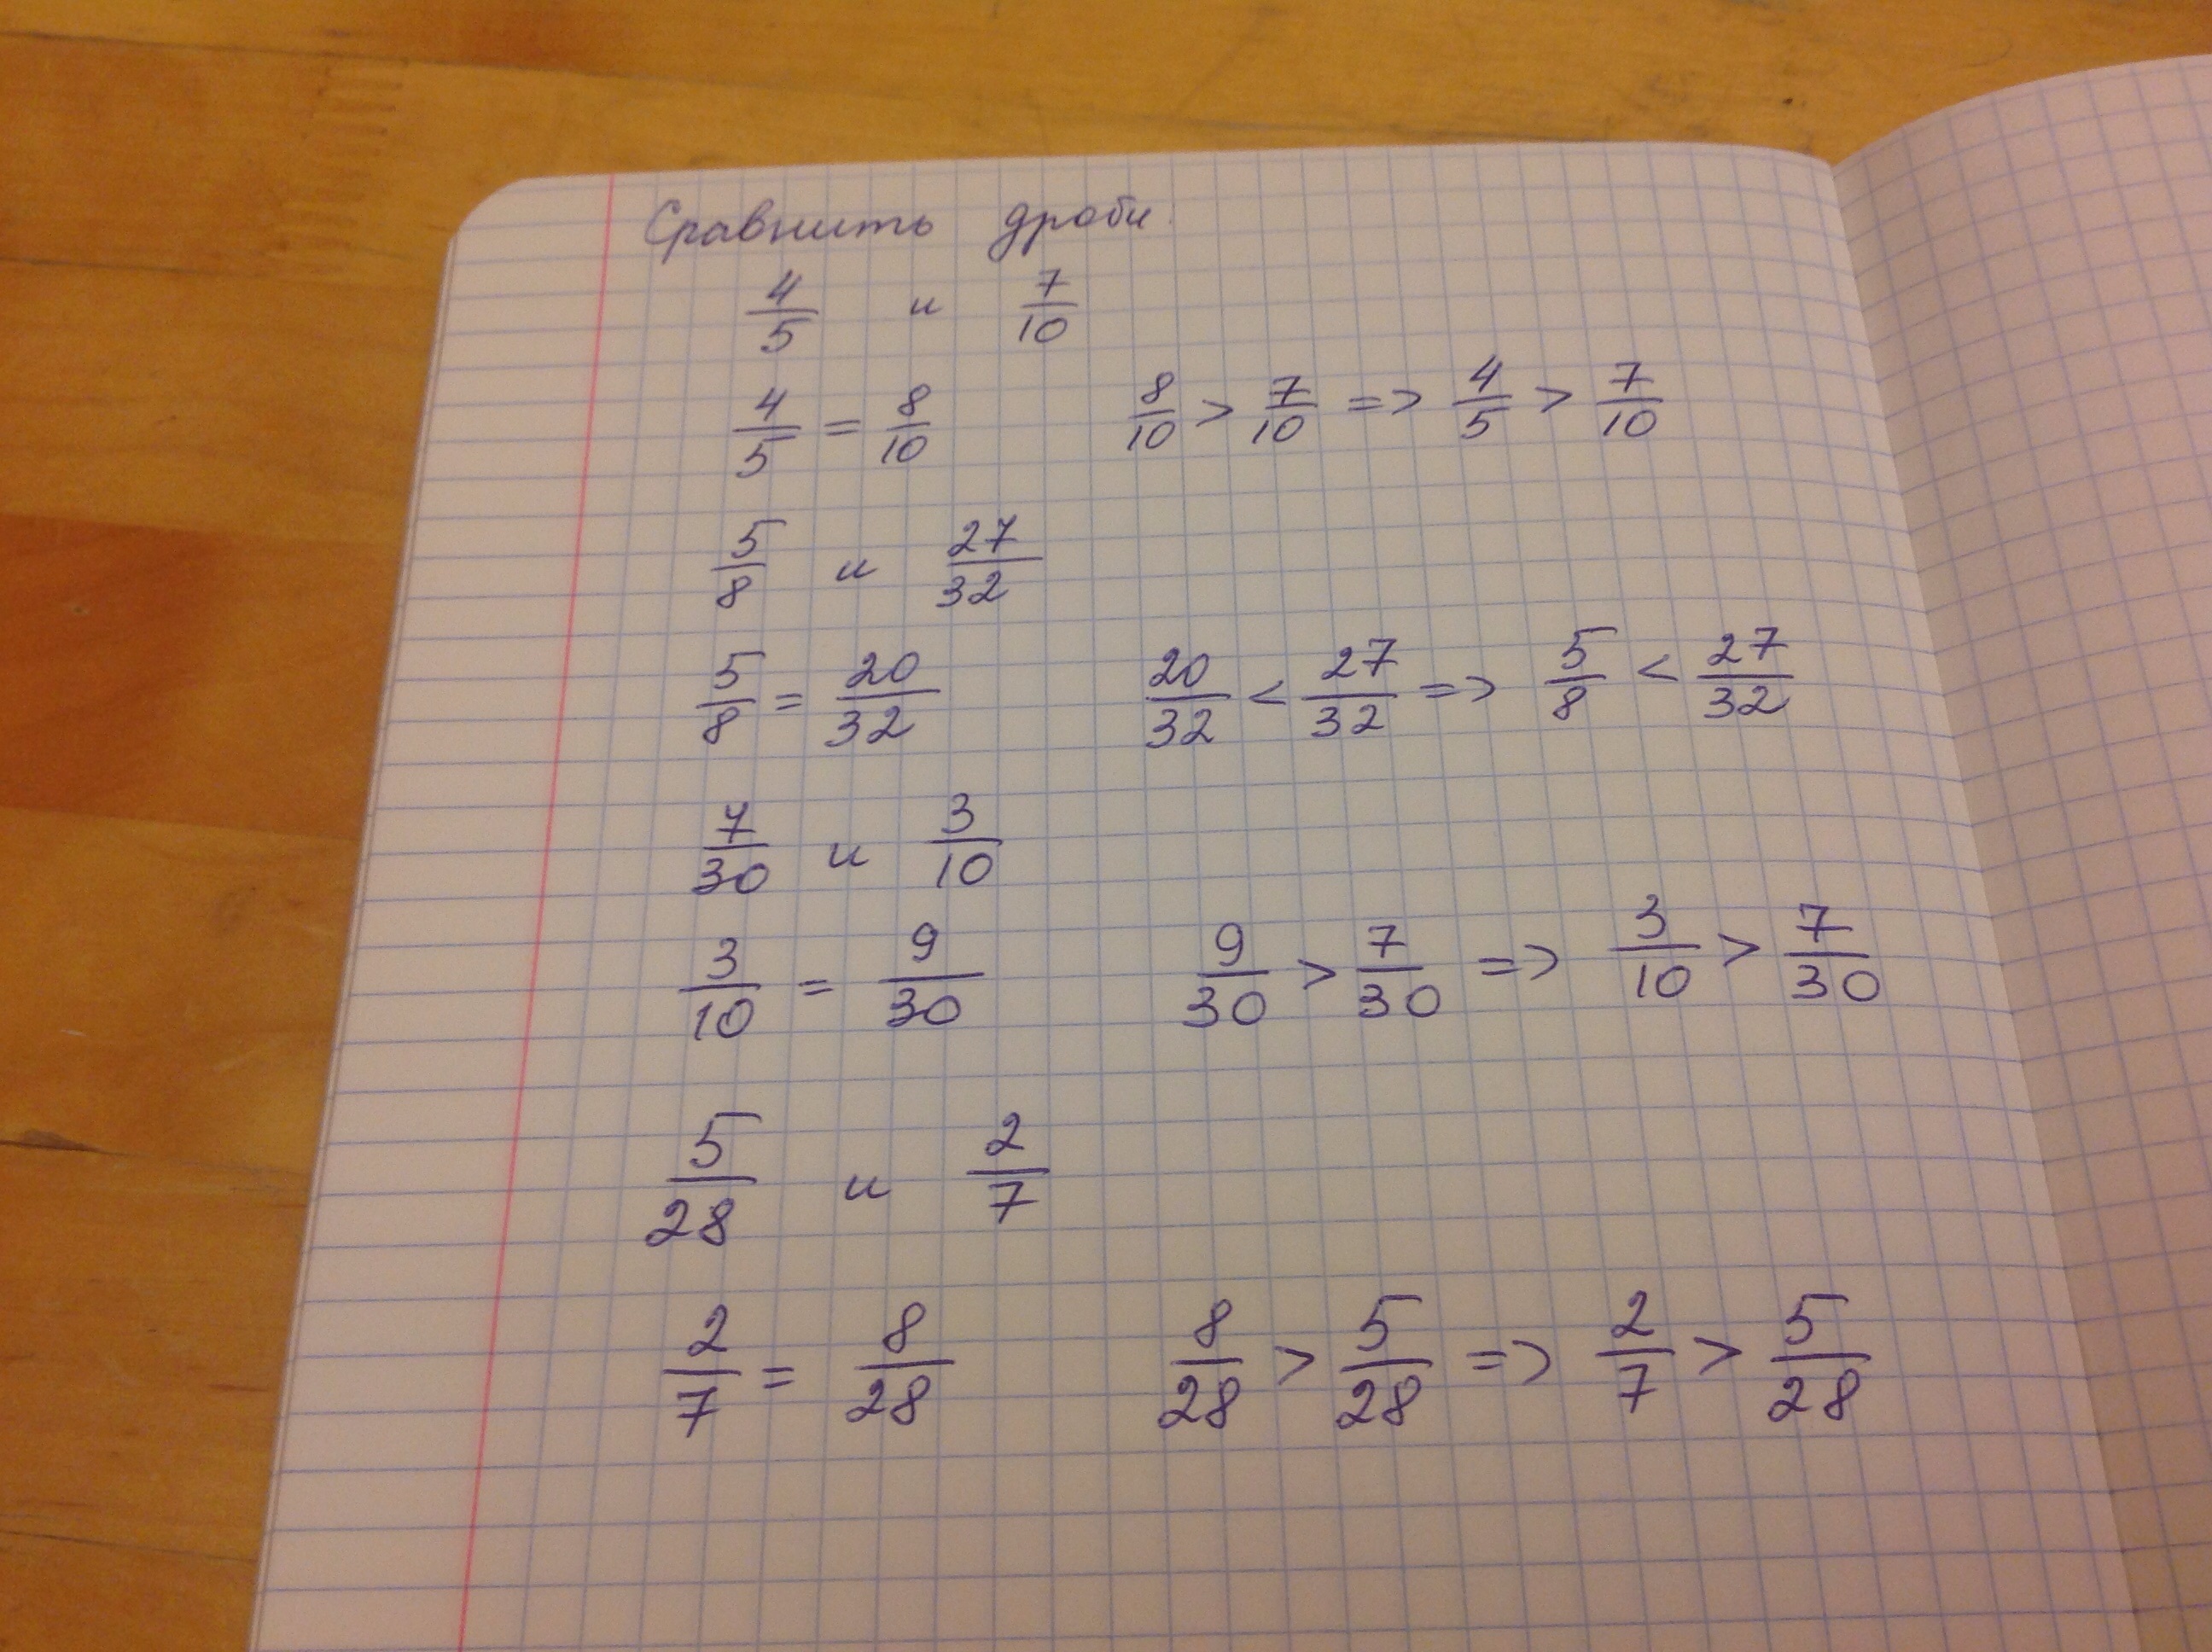 Сравнить дроби.
4/5 и 7/10
4/5 = 8/10 8/10 > 7/10 => 4/5 > 7/10
5/8 и 27/32
5/8 = 20/32 20/32 < 27/32 => 5/8 < 27/32
7/30 и 3/10
3/10 = 9/30 9/30 > 7/30 => 3/10 > 7/30
5/28 и 2/7
2/7 = 8/28 8/28 > 5/28 => 2/7 > 5/28